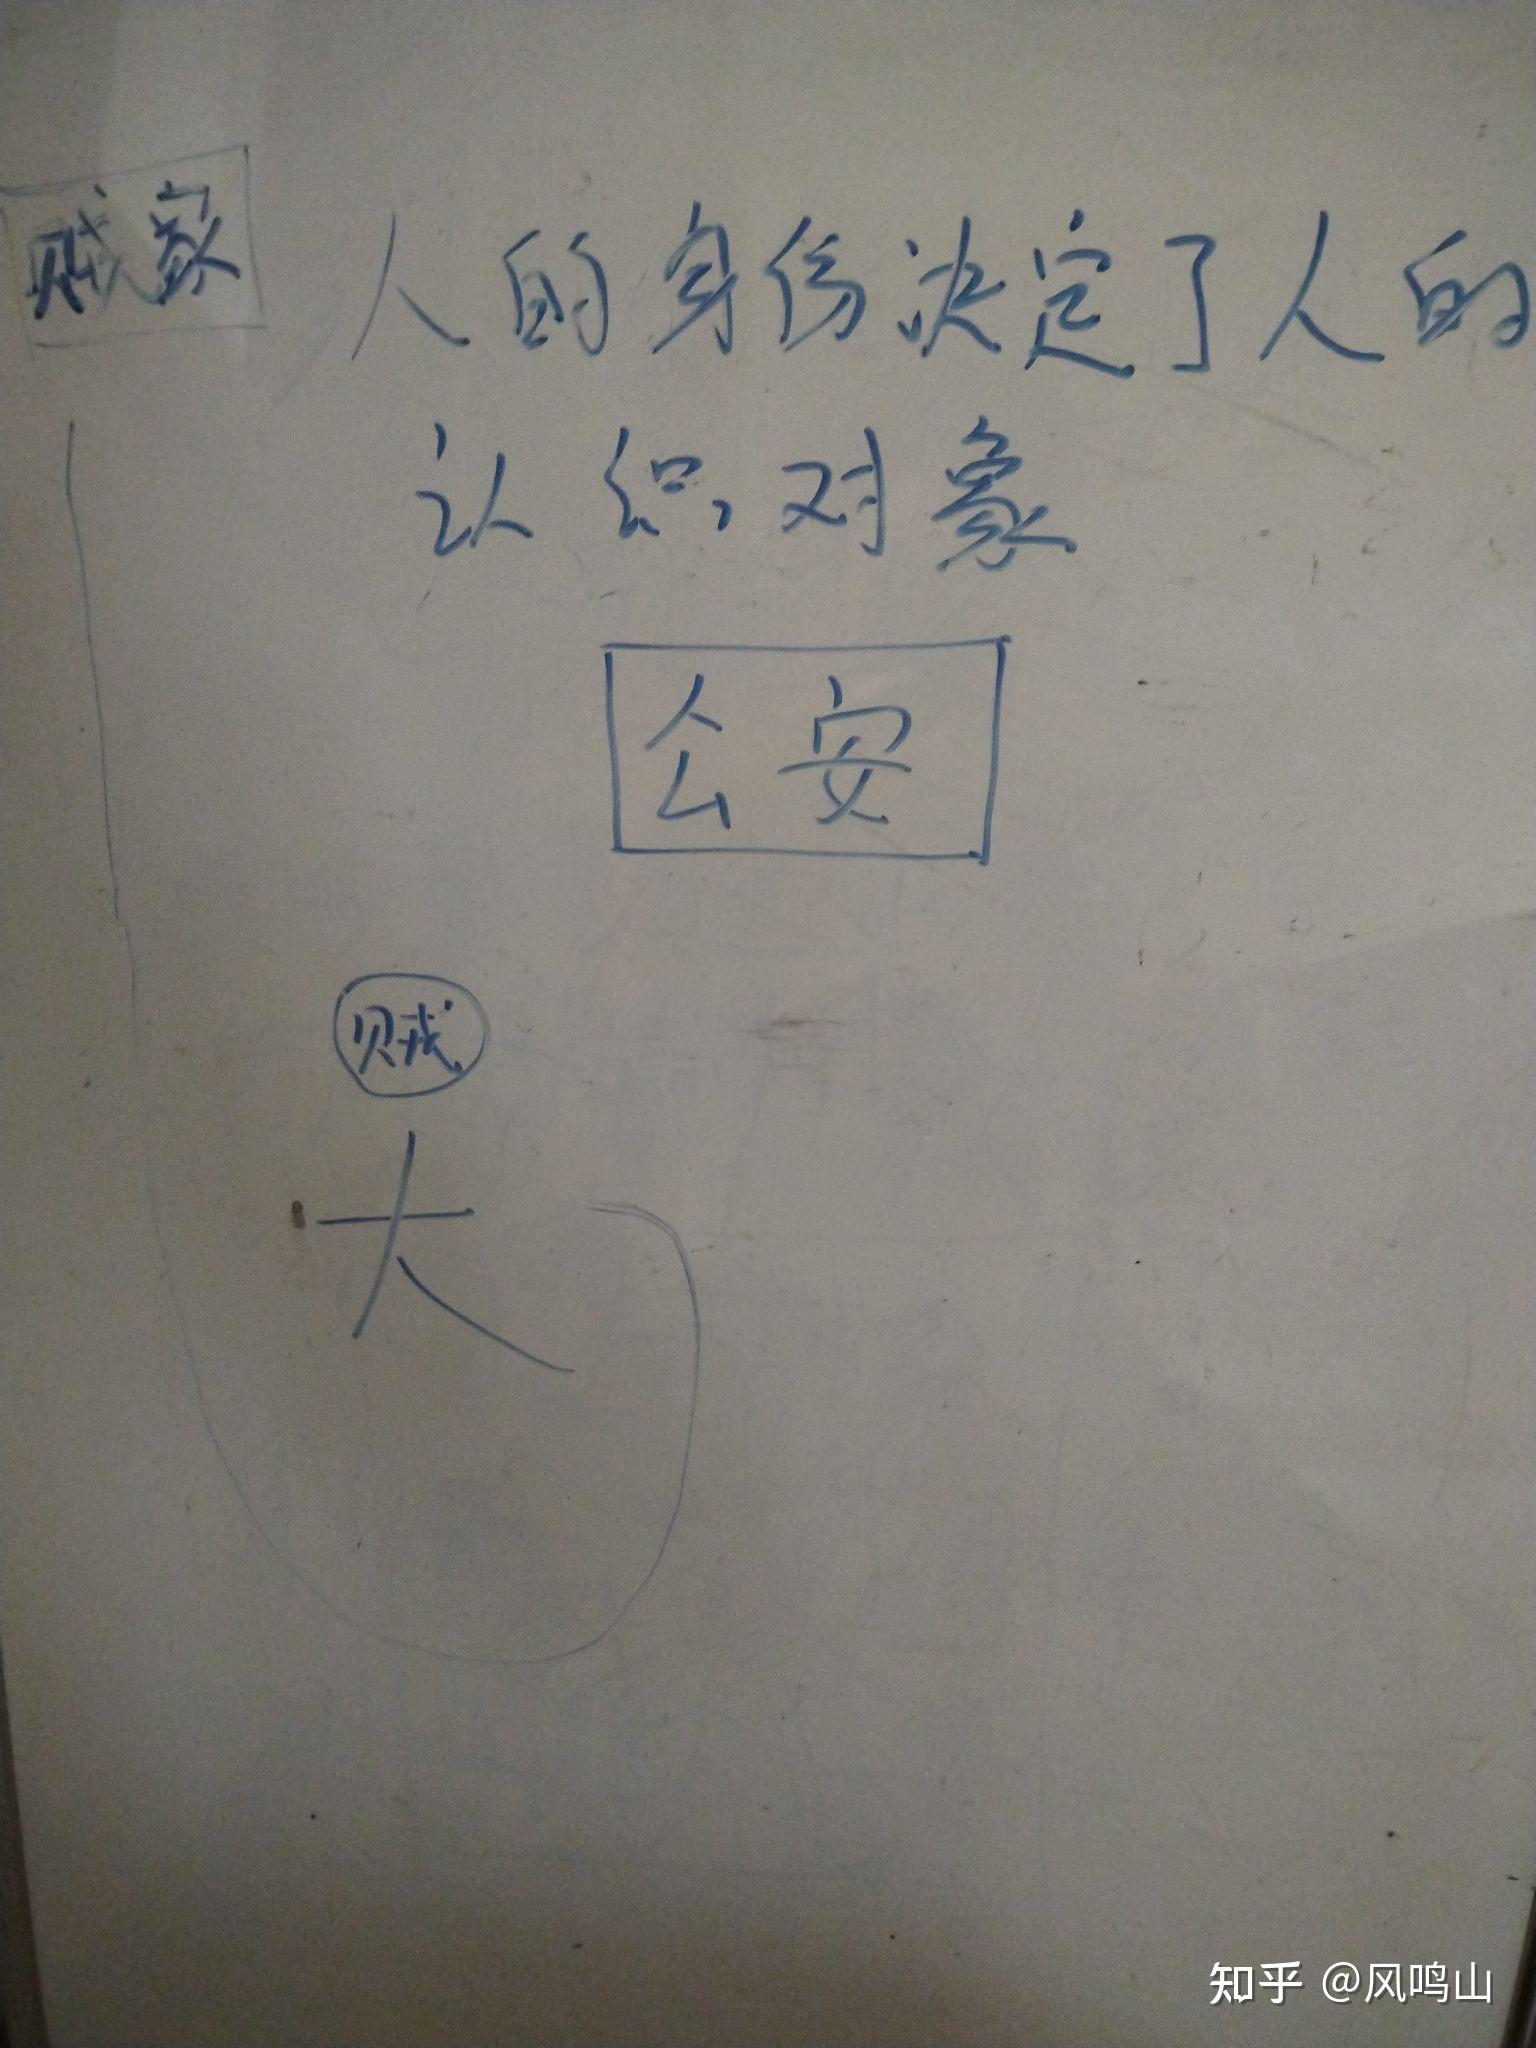 贼家
人的身份决定了人的
认识对象
公安
贼
知乎 @风鸣山